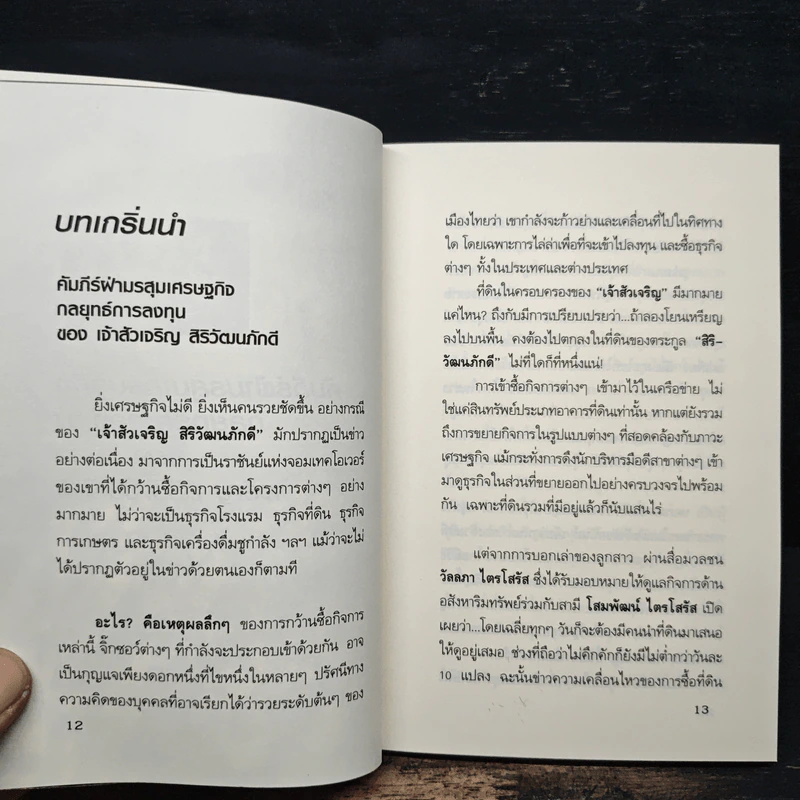 บทเกริ่นนำ
คัมภีร์ฝ่ามรสุมเศรษฐกิจ
กลยุทธ์การลงทุน
ของ เจ้าสัวเจริญ สิริวัฒนภักดี
ยิ่งเศรษฐกิจไม่ดี ยิ่งเห็นคนรวยชัดขึ้น อย่างกรณี
ของ “เจ้าสัวเจริญ สิริวัฒนภักดี” มักปรากฏเป็นข่าว
อย่างต่อเนื่อง มาจากการเป็นราชันย์แห่งจอมเทคโอเวอร์
ของเขาที่ได้กว้านซื้อกิจการและโครงการต่างๆ อย่าง
มากมาย ไม่ว่าจะเป็นธุรกิจโรงแรม ธุรกิจที่ดิน ธุรกิจ
การเกษตร และธุรกิจเครื่องดื่มชูกำลัง ฯลฯ แม้ว่าจะไม่
ได้ปรากฏตัวอยู่ในข่าวด้วยตนเองก็ตามที
อะไร? คือเหตุผลลึกๆ ของการกว้านซื้อกิจการ
เหล่านี้ จิ๊กซอว์ต่างๆ ที่กำลังจะประกอบเข้าด้วยกัน อาจ
เป็นกุญแจเพียงดอกหนึ่งที่ไขหนึ่งในหลายๆ ปริศนีทาง
ความคิดของบุคคลที่อาจเรียกได้ว่ารวยระดับต้นๆ ของ
12
เมืองไทยว่า เขากำลังจะก้าวย่างและเคลื่อนที่ไปในทิศทาง
ใด โดยเฉพาะการไล่ล่าเพื่อที่จะเข้าไปลงทุน และซื้อธุรกิจ
ต่างๆ ทั้งในประเทศและต่างประเทศ
ที่ดินในครอบครองของ “เจ้าสัวเจริญ” มีมากมาย
แค่ไหน? ถึงกับมีการเปรียบเปรยว่า...ถ้าลองโยนเหรียญ
ลงไปบนพื้น คงต้องไปตกลงในที่ดินของตระกูล “สิริ-
วัฒนภักดี” ไม่ที่ใดก็ที่หนึ่งแน่!
การเข้าซื้อกิจการต่างๆ เข้ามาไว้ในเครือข่าย ไม่
ใช่แค่สินทรัพย์ประเภทอาคารที่ดินเท่านั้น หากแต่ยังรวม
ถึงการขยายกิจการในรูปแบบต่างๆ ที่สอดคล้องกับภาวะ
เศรษฐกิจ แม้กระทั่งการดึงนักบริหารมือดีสาขาต่างๆ เข้า
มาดูธุรกิจในส่วนที่ขยายออกไปอย่างครบวงจรไปพร้อม
กัน เฉพาะที่ดินรวมที่มีอยู่แล้วก็นับแสนไร่
แต่จากการบอกเล่าของลูกสาว ผ่านสื่อมวลชน
วัลลภา ไตรโสรัส ซึ่งได้รับมอบหมายให้ดูแลกิจการด้าน
อสังหาริมทรัพย์ร่วมกับสามี โสมพัฒน์ ไตรโสรัส เปิด
เผยว่า...โดยเฉลี่ยทุกๆ วันก็จะต้องมีคนนำที่ดินมาเสนอ
ให้ดูอยู่เสมอ ช่วงที่ถือว่าไม่คึกคักก็ยังมีไม่ต่ำกว่าวันละ
10 แปลง ฉะนั้นข่าวความเคลื่อนไหวของการซื้อที่ดิน
13